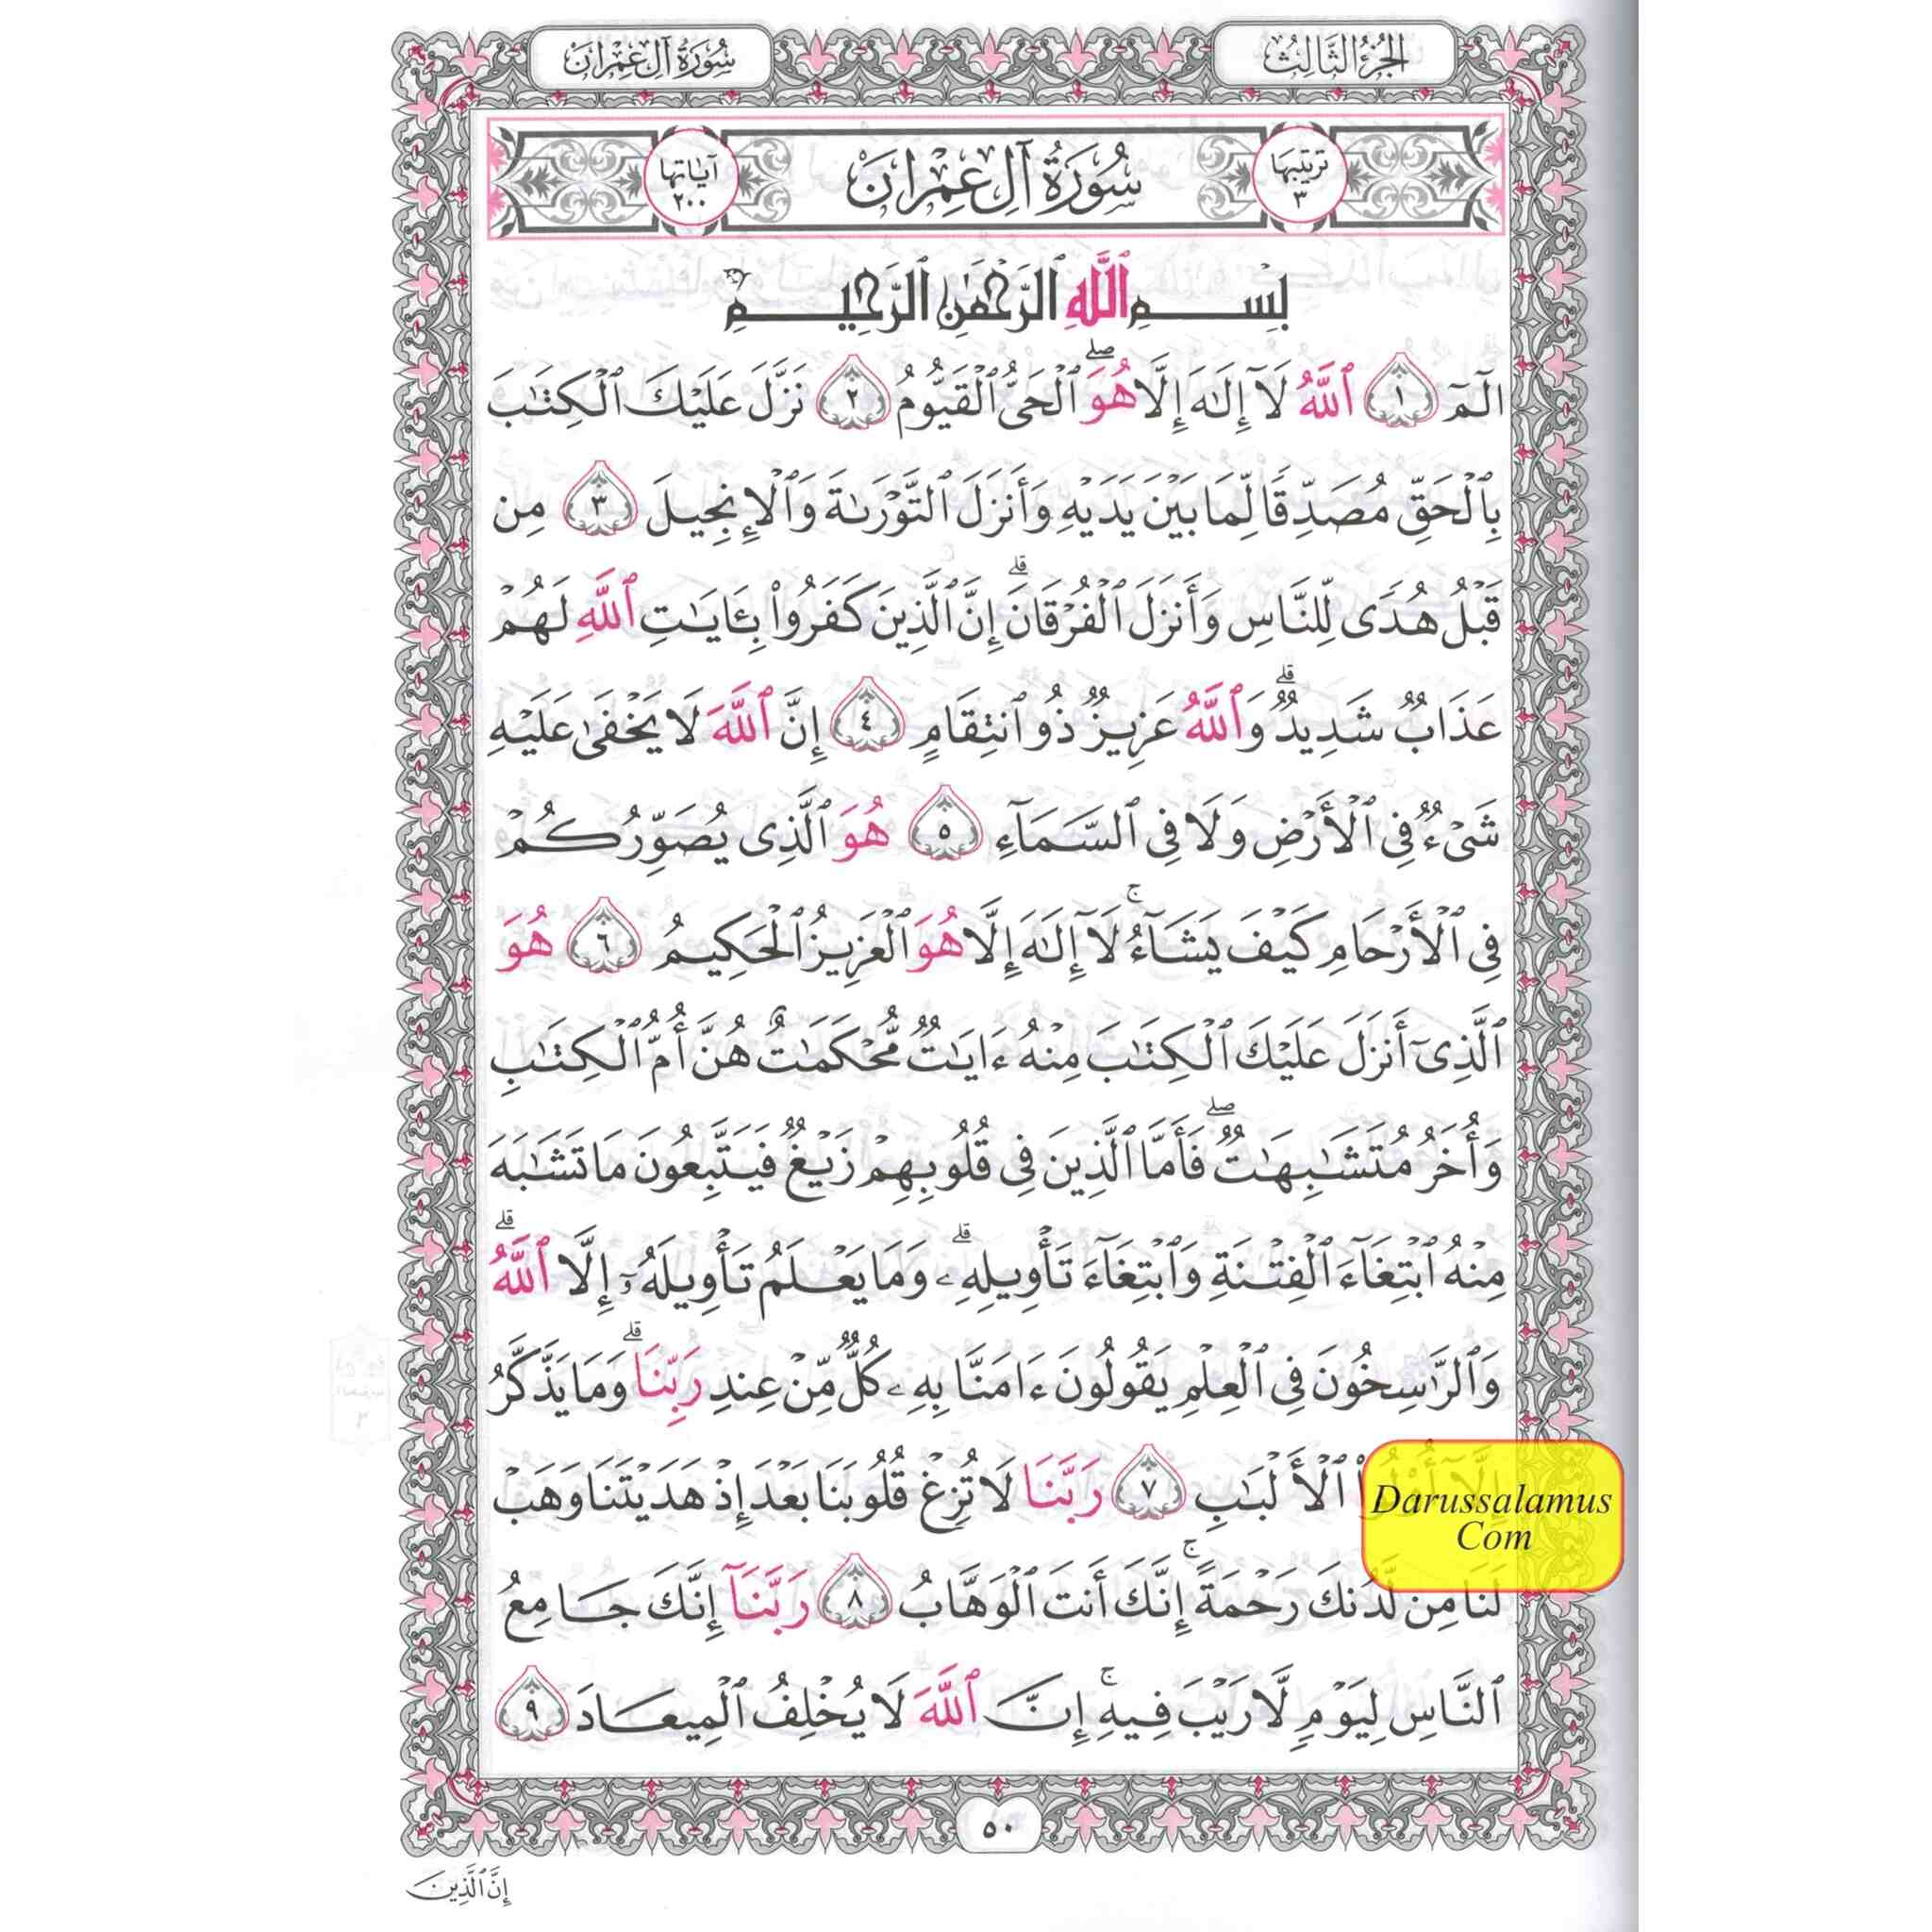 الجُزْءُ الثَّالِثُ
سُورَةُ آلِ عِمْرَانَ
تَرْتِيبُهَا ٣
سُورَةُ آلِ عِمْرَانَ
آيَاتُهَا ٢٠٠
بِسْمِ ٱللَّهِ ٱلرَّحْمَٰنِ ٱلرَّحِيمِ
الٓمٓ ١ ٱللَّهُ لَآ إِلَٰهَ إِلَّا هُوَ ۖ ٱلْحَىُّ ٱلْقَيُّومُ ٢ نَزَّلَ عَلَيْكَ ٱلْكِتَٰبَ
بِٱلْحَقِّ مُصَدِّقًا لِّمَا بَيْنَ يَدَيْهِ وَأَنزَلَ ٱلتَّوْرَىٰةَ وَٱلْإِنجِيلَ ٣ مِن
قَبْلُ هُدًى لِّلنَّاسِ وَأَنزَلَ ٱلْفُرْقَانَ ۗ إِنَّ ٱلَّذِينَ كَفَرُوا۟ بِـَٔايَٰتِ ٱللَّهِ لَهُمْ
عَذَابٌ شَدِيدٌ ۗ وَٱللَّهُ عَزِيزٌ ذُو ٱنتِقَامٍ ٤ إِنَّ ٱللَّهَ لَا يَخْفَىٰ عَلَيْهِ
شَىْءٌ فِى ٱلْأَرْضِ وَلَا فِى ٱلسَّمَآءِ ٥ هُوَ ٱلَّذِى يُصَوِّرُكُمْ
فِى ٱلْأَرْحَامِ كَيْفَ يَشَآءُ ۚ لَآ إِلَٰهَ إِلَّا هُوَ ٱلْعَزِيزُ ٱلْحَكِيمُ ٦ هُوَ
ٱلَّذِىٓ أَنزَلَ عَلَيْكَ ٱلْكِتَٰبَ مِنْهُ ءَايَٰتٌ مُّحْكَمَٰتٌ هُنَّ أُمُّ ٱلْكِتَٰبِ
وَأُخَرُ مُتَشَٰبِهَٰتٌ ۖ فَأَمَّا ٱلَّذِينَ فِى قُلُوبِهِمْ زَيْغٌ فَيَتَّبِعُونَ مَا تَشَٰبَهَ
مِنْهُ ٱبْتِغَآءَ ٱلْفِتْنَةِ وَٱبْتِغَآءَ تَأْوِيلِهِۦ ۗ وَمَا يَعْلَمُ تَأْوِيلَهُۥٓ إِلَّا ٱللَّهُ ۗ
وَٱلرَّٰسِخُونَ فِى ٱلْعِلْمِ يَقُولُونَ ءَامَنَّا بِهِۦ كُلٌّ مِّنْ عِندِ رَبِّنَا ۗ وَمَا يَذَّكَّرُ
إِلَّآ أُو۟لُوا۟ ٱلْأَلْبَٰبِ ٧ رَبَّنَا لَا تُزِغْ قُلُوبَنَا بَعْدَ إِذْ هَدَيْتَنَا وَهَبْ
لَنَا مِن لَّدُنكَ رَحْمَةً ۚ إِنَّكَ أَنتَ ٱلْوَهَّابُ ٨ رَبَّنَآ إِنَّكَ جَامِعُ
ٱلنَّاسِ لِيَوْمٍ لَّا رَيْبَ فِيهِ ۚ إِنَّ ٱللَّهَ لَا يُخْلِفُ ٱلْمِيعَادَ ٩
Darussalamus
Com
٥٠
إِنَّ ٱلَّذِينَ